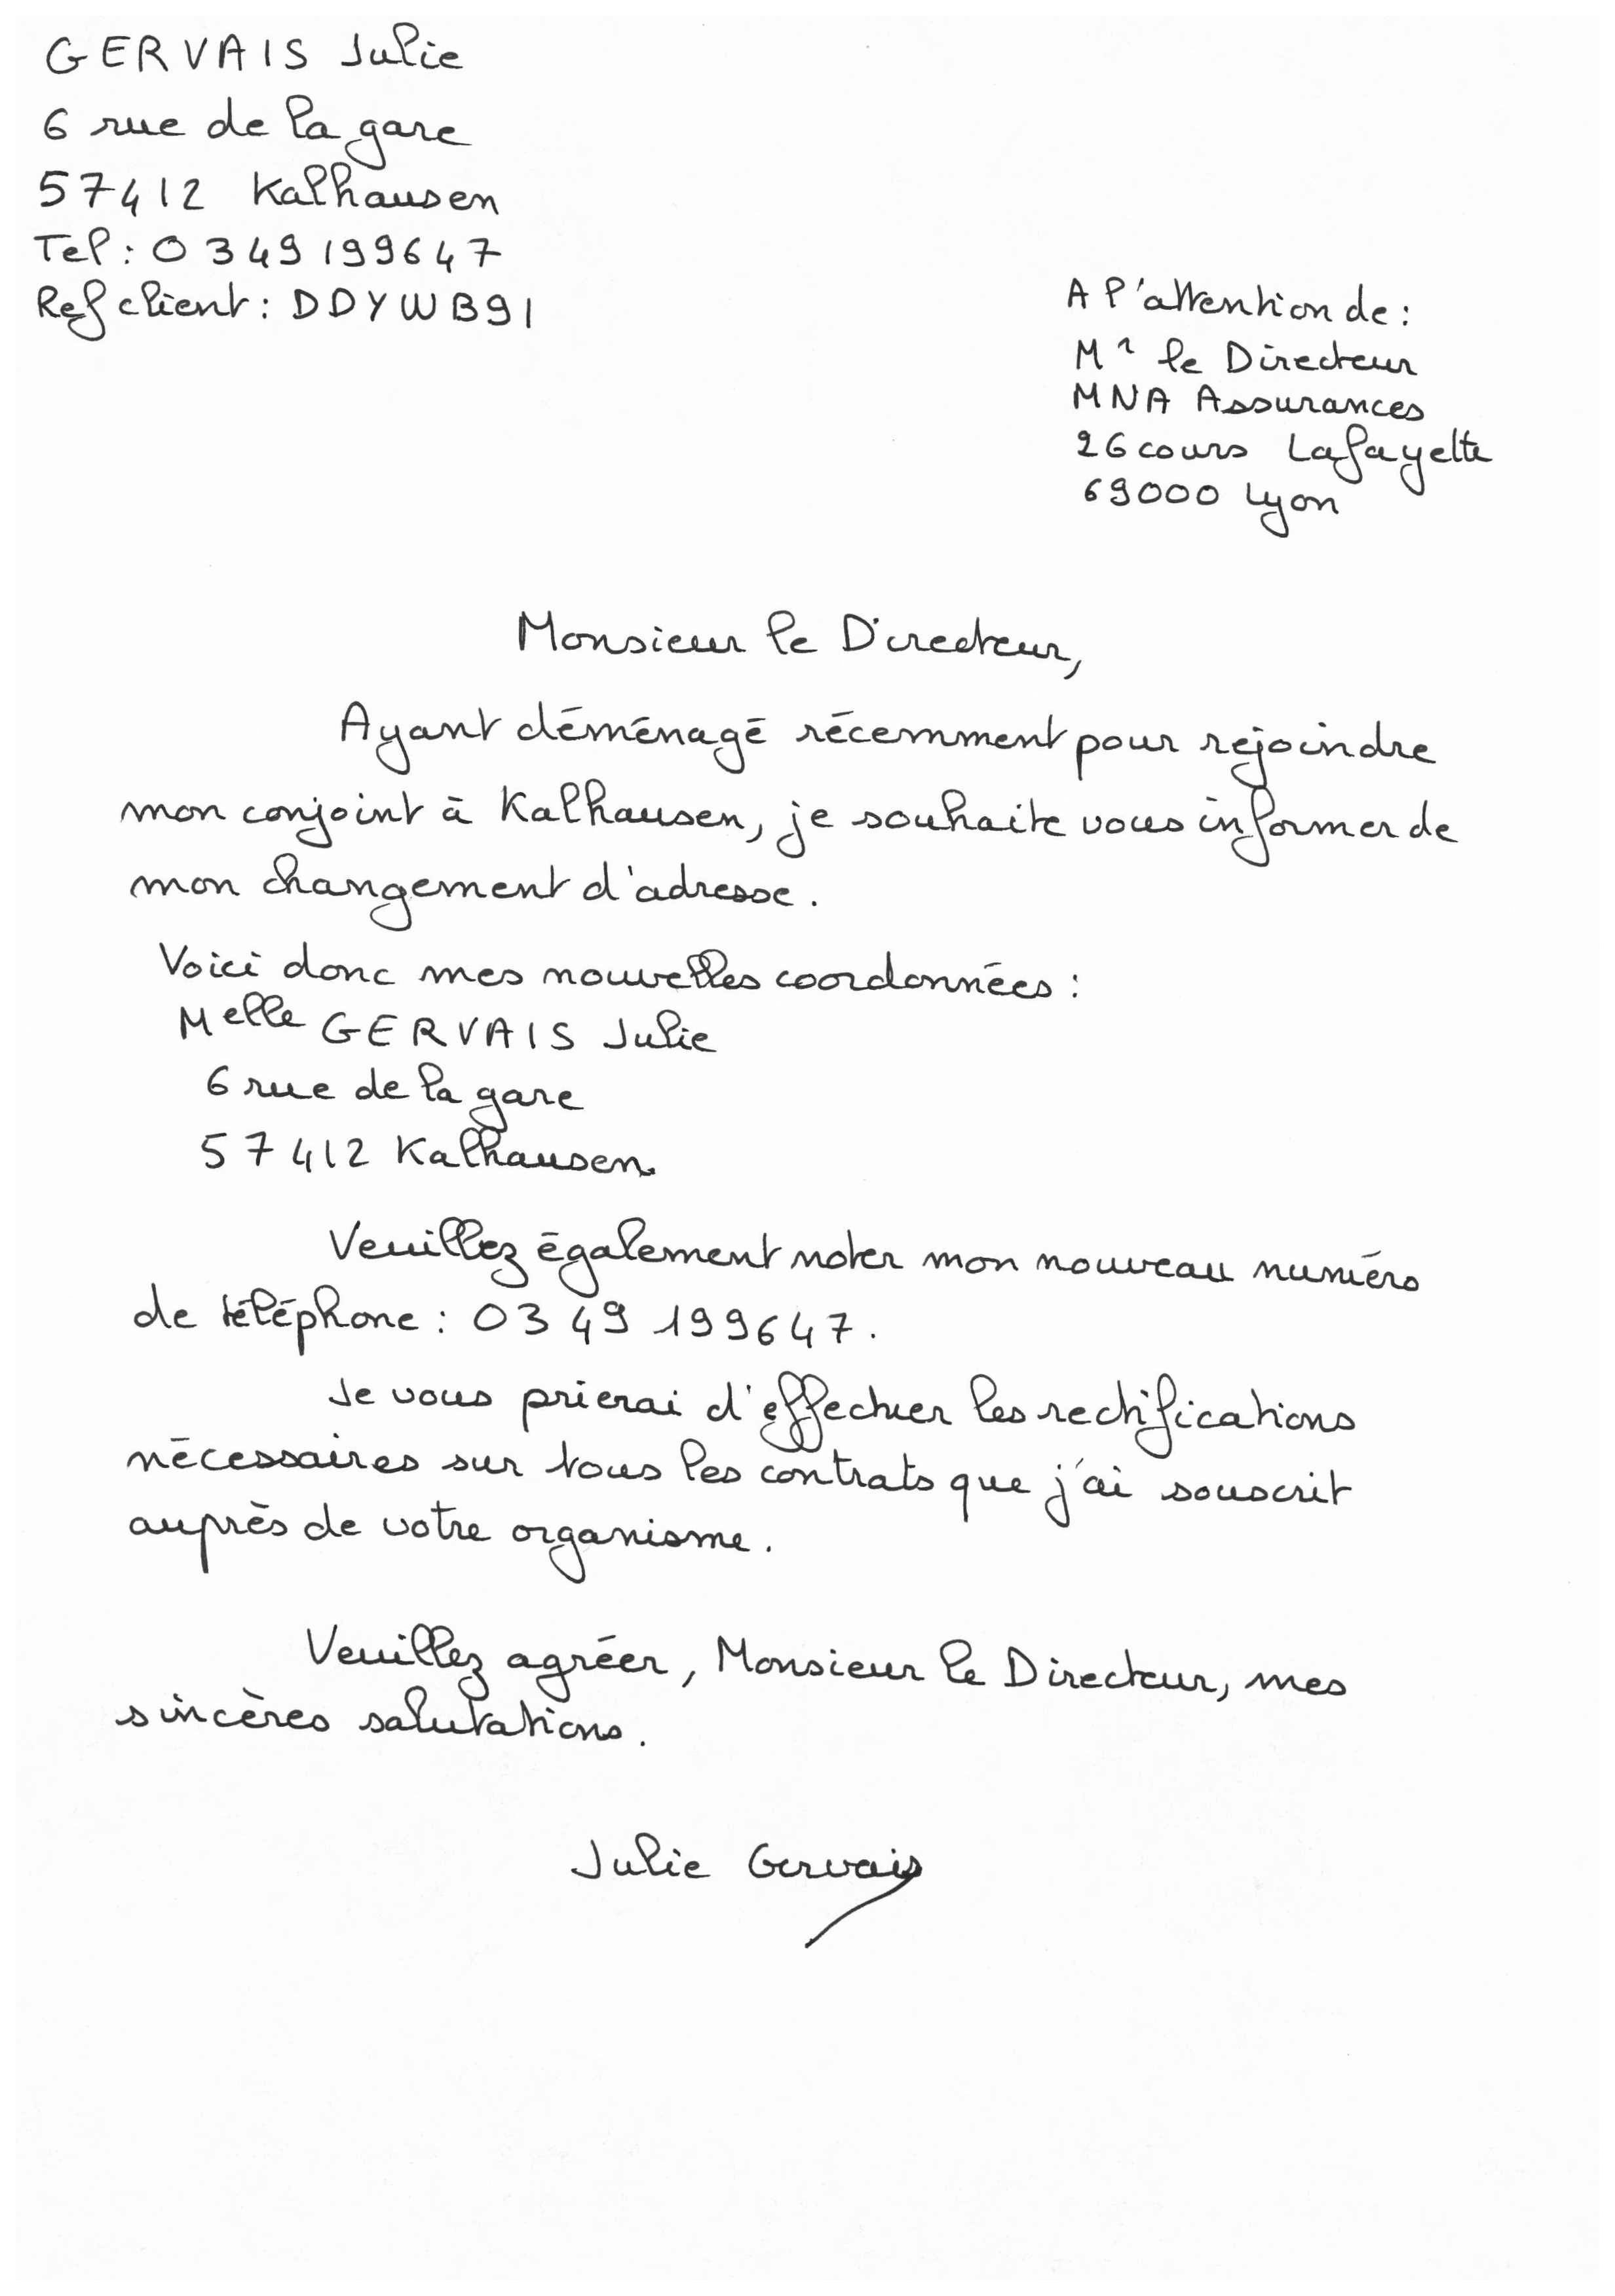 GERVAIS Julie
6 rue de la gare
57412 Kalhausen
Tel : 0349199647
Ref client : DDYWB91
A l'attention de :
Mr le Directeur
MNA Assurances
26 cours Lafayette
69000 Lyon
Monsieur le Directeur,
Ayant déménagé récemment pour rejoindre
mon conjoint à Kalhausen, je souhaite vous informer de
mon changement d'adresse.
Voici donc mes nouvelles coordonnées :
Melle GERVAIS Julie
6 rue de la gare
57412 Kalhausen.
Veuillez également noter mon nouveau numéro
de téléphone : 0349199647.
Je vous prierai d'effectuer les rectifications
nécessaires sur tous les contrats que j'ai souscrit
auprès de votre organisme.
Veuillez agréer, Monsieur le Directeur, mes
sincères salutations.
Julie Gervais